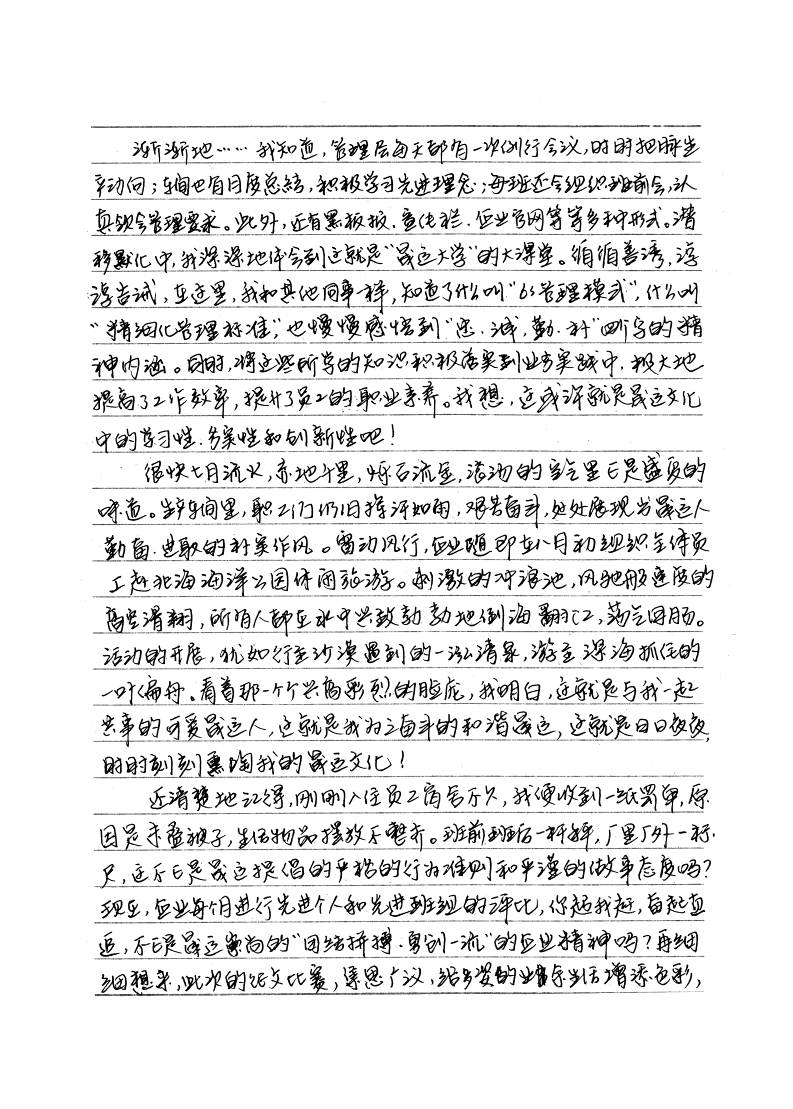 渐渐地……我知道,管理层每天都有一次例行会议,时时把脉生
产动向;车间也有月度总结,积极学习先进理念;每班还会组织班前会,认
真领会管理要求。此外,还有黑板报、宣传栏、企业官网等等多种形式。潜
移默化中,我深深地体会到这就是“晟运大学”的大课堂。循循善诱,谆
谆告诫,在这里,我和其他同事一样,知道了什么叫“6S管理模式”,什么叫
“精细化管理标准”,也慢慢感悟到“忠、诚、勤、朴”四个字的精
神内涵。同时,将这些所学的知识积极落实到业务实践中,极大地
提高了工作效率,提升了员工的职业素养。我想,这或许就是晟运文化
中的学习性、务实性和创新性吧!
很快七月流火,赤地千里,烁石流金,滚烫的空气里已是盛夏的
味道。生产车间里,职工们仍旧挥汗如雨,艰苦奋斗,处处展现出晟运人
勤奋、进取的朴实作风。雷动风行,企业随即在八月初组织全体员
工赴北海海洋公园休闲旅游。刺激的冲浪池,风驰般速度的
高空滑翔,所有人都在水中兴致勃勃地倒海翻江,荡气回肠。
活动的开展,犹如行至沙漠遇到的一泓清泉,游至深海抓住的
一叶扁舟。看着那一个个兴高彩烈的脸庞,我明白,这就是与我一起
共事的可爱晟运人,这就是我为之奋斗的和谐晟运,这就是日日夜夜,
时时刻刻熏陶我的晟运文化!
还清楚地记得,刚刚入住员工宿舍不久,我便收到一纸罚单,原
因是未叠被子,生活物品摆放不整齐。班前班后一种样,厂里厂外一标
尺,这不正是晟运提倡的严格的行为准则和严谨的做事态度吗?
现在,企业每个月进行先进个人和先进班组的评比,你超我赶,奋起直
追,不正是晟运崇尚的“团结拼搏、勇创一流”的企业精神吗?再细
细想来,此次的征文比赛,集思广议,给多姿的业余生活增添色彩,